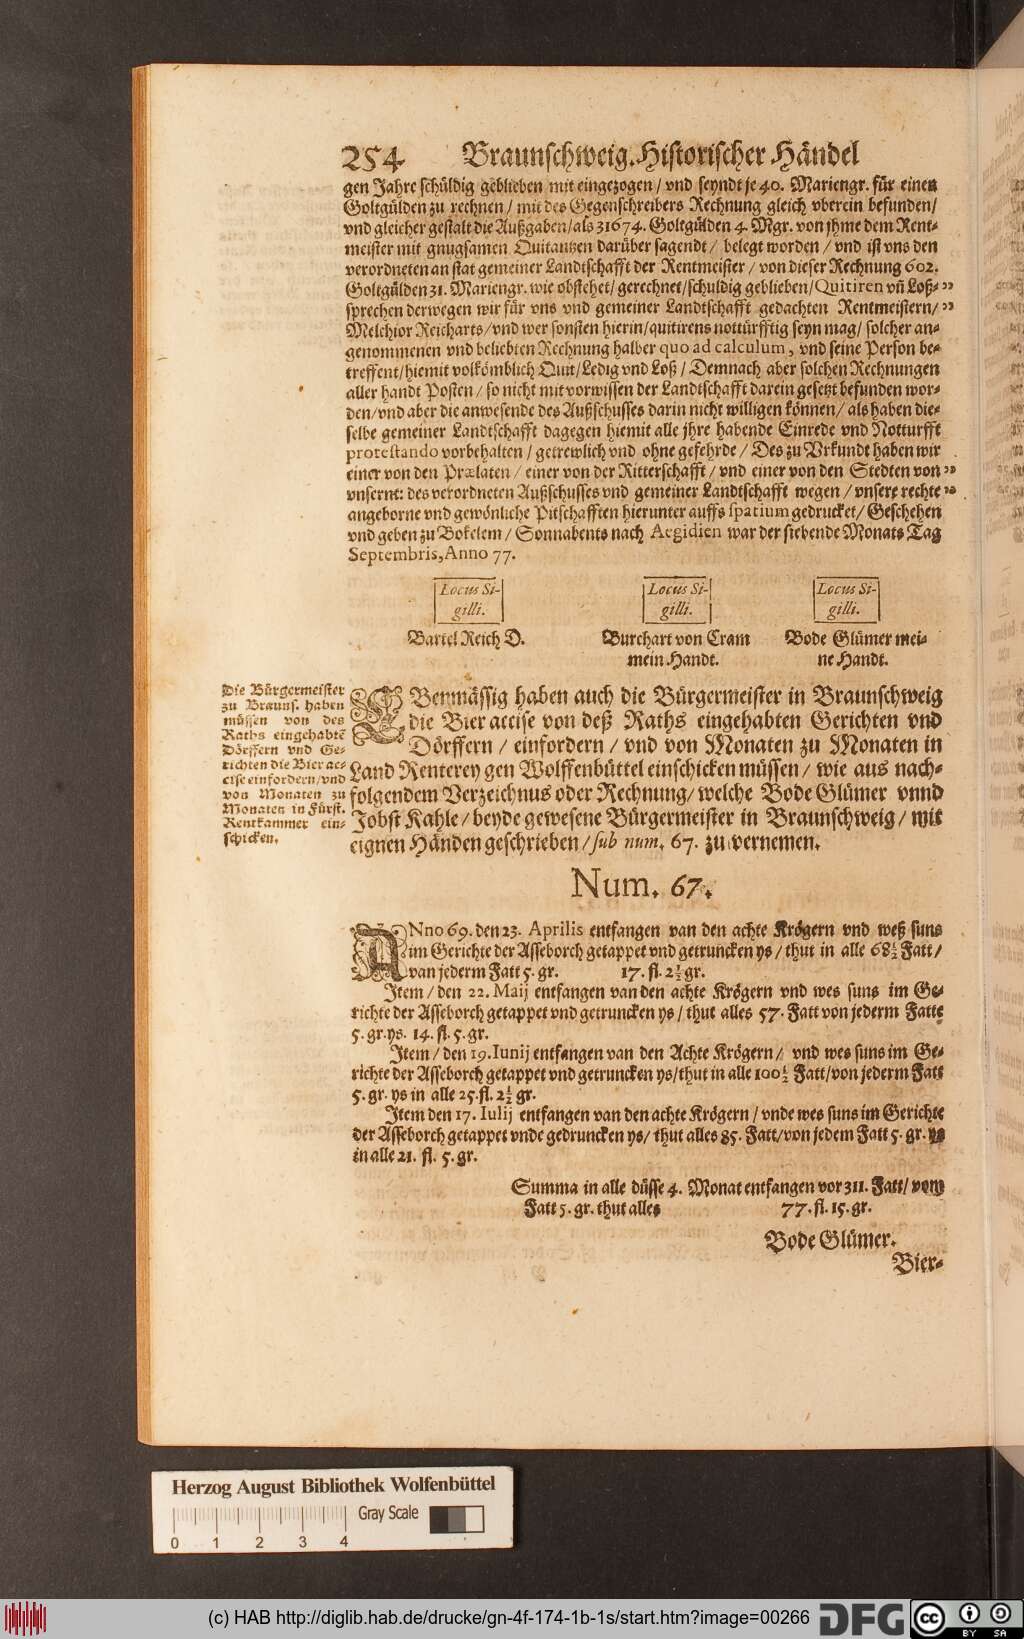 254 Braunschweig. Historischer Händel
gen Jahre schüldig geblieben mit eingezogen / vnd seyndt je 40. Mariengr. für einen
Goltgülden zu rechnen / mit des Gegenschreibers Rechnung gleich vberein befunden/
vnd gleicher gestalt die Außgaben/als 31674. Goltgülden 4. Mgr. von jhme dem Rent-
meister mit gnugsamen Quitantzen darüber sagendt / belegt worden / vnd ist vns den
verordneten an stat gemeiner Landtschafft der Rentmeister / von dieser Rechnung 602.
Goltgülden 31. Mariengr. wie obstehet/ gerechnet/schuldig geblieben/Quitiren vñ Loß- ”
sprechen derwegen wir für vns vnd gemeiner Landtschafft gedachten Rentmeistern/ ”
Melchior Reicharts/vnd wer sonsten hierin/quitirens nottürfftig seyn mag/ solcher an-
genommenen vnd beliebten Rechnung halber quo ad calculum, vnd seine Person be-
treffent/hiemit volkömblich Quit/Ledig vnd Loß / Demnach aber solchen Rechnungen
aller handt Posten / so nicht mit vorwissen der Landtschafft darein gesetzt befunden wor-
den/vnd aber die anwesende des Außschusses darin nicht willigen können/ als haben die-
selbe gemeiner Landtschafft dagegen hiemit alle jhre habende Einrede vnd Notturfft
protestando vorbehalten / getrewlich vnd ohne gefehrde / Des zu Vrkundt haben wir
einer von den Prælaten / einer von der Ritterschafft / vnd einer von den Stedten von ”
vnsernt: des verordneten Außschusses vnd gemeiner Landtschafft wegen / vnsere rechte ”
angeborne vnd gewönliche Pitschafften hierunter auffs spatium gedrucket/ Geschehen
vnd geben zu Bokelem / Sonnabents nach Aegidien war der siebende Monats Tag
Septembris, Anno 77.
Locus Si- Locus Si- Locus Si-
gilli. gilli. gilli.
Bartel Reich D. Burchart von Cram Bode Glümer mei-
mein Handt. ne Handt.
Die Bürgermeister
zu Brauns. haben
müssen von des
Raths eingehabtē
Dörffern vnd Ge-
richten die Bier ac-
cise einfordern/vnd
von Monaten zu
Monaten in Fürst.
Rentkammer ein-
schicken.
EBenmässig haben auch die Bürgermeister in Braunschweig
die Bier accise von deß Raths eingehabten Gerichten vnd
Dörffern / einfordern / vnd von Monaten zu Monaten in
Land Renterey gen Wolffenbüttel einschicken müssen / wie aus nach-
folgendem Verzeichnus oder Rechnung/ welche Bode Glümer vnnd
Jobst Kahle / beyde gewesene Bürgermeister in Braunschweig / mit
eignen Händen geschrieben / sub num. 67. zu vernemen.
Num. 67.
ANno 69. den 23. Aprilis entfangen van den achte Krögern vnd weß suns
im Gerichte der Asseborch getappet vnd getruncken ys / thut in alle 68½ Fatt /
van jederm Fatt 5. gr. 17. fl. 2½ gr.
Item / den 22. Maij entfangen van den achte Krögern vnd wes suns im Ge-
richte der Asseborch getappet vnd getruncken ys / thut alles 57. Fatt von jederm Fatte
5. gr. ys. 14. fl. 5. gr.
Item / den 19. Iunij entfangen van den Achte Krögern / vnd wes suns im Ge-
richte der Asseborch getappet vnd getruncken ys/thut in alle 100½ Fatt/von jederm Fatt
5. gr. ys in alle 25. fl. 2½ gr.
Item den 17. Iulij entfangen van den achte Krögern / vnde wes suns im Gerichte
der Asseborch getappet vnde gedruncken ys/ thut alles 85. Fatt/von jedem Fatt 5. gr. ys
in alle 21. fl. 5. gr.
Summa in alle düsse 4. Monat entfangen vor 311. Fatt/ vom
Fatt 5. gr. thut alles 77. fl. 15. gr.
Bode Glümer.
Bier-
Herzog August Bibliothek Wolfenbüttel
Gray Scale
0 1 2 3 4
(c) HAB http://diglib.hab.de/drucke/gn-4f-174-1b-1s/start.htm?image=00266
DFG
cc BY SA